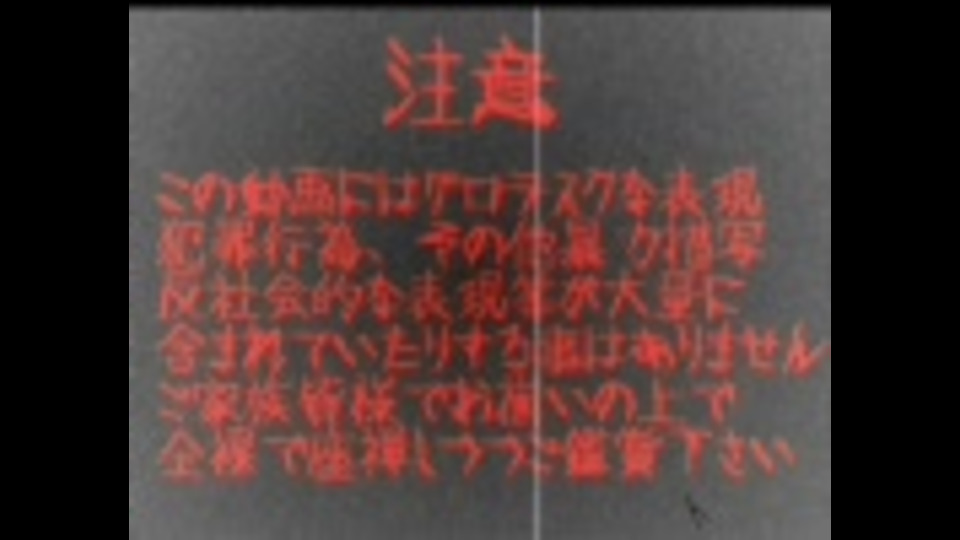 注意
この動画にはグロテスクな表現
犯罪行為、その他裏 写
反社会的な表現等が大量に
含まれていたりする はありません
ご家族皆様でお誘いの上で
全裸で座禅しつつご鑑賞下さい